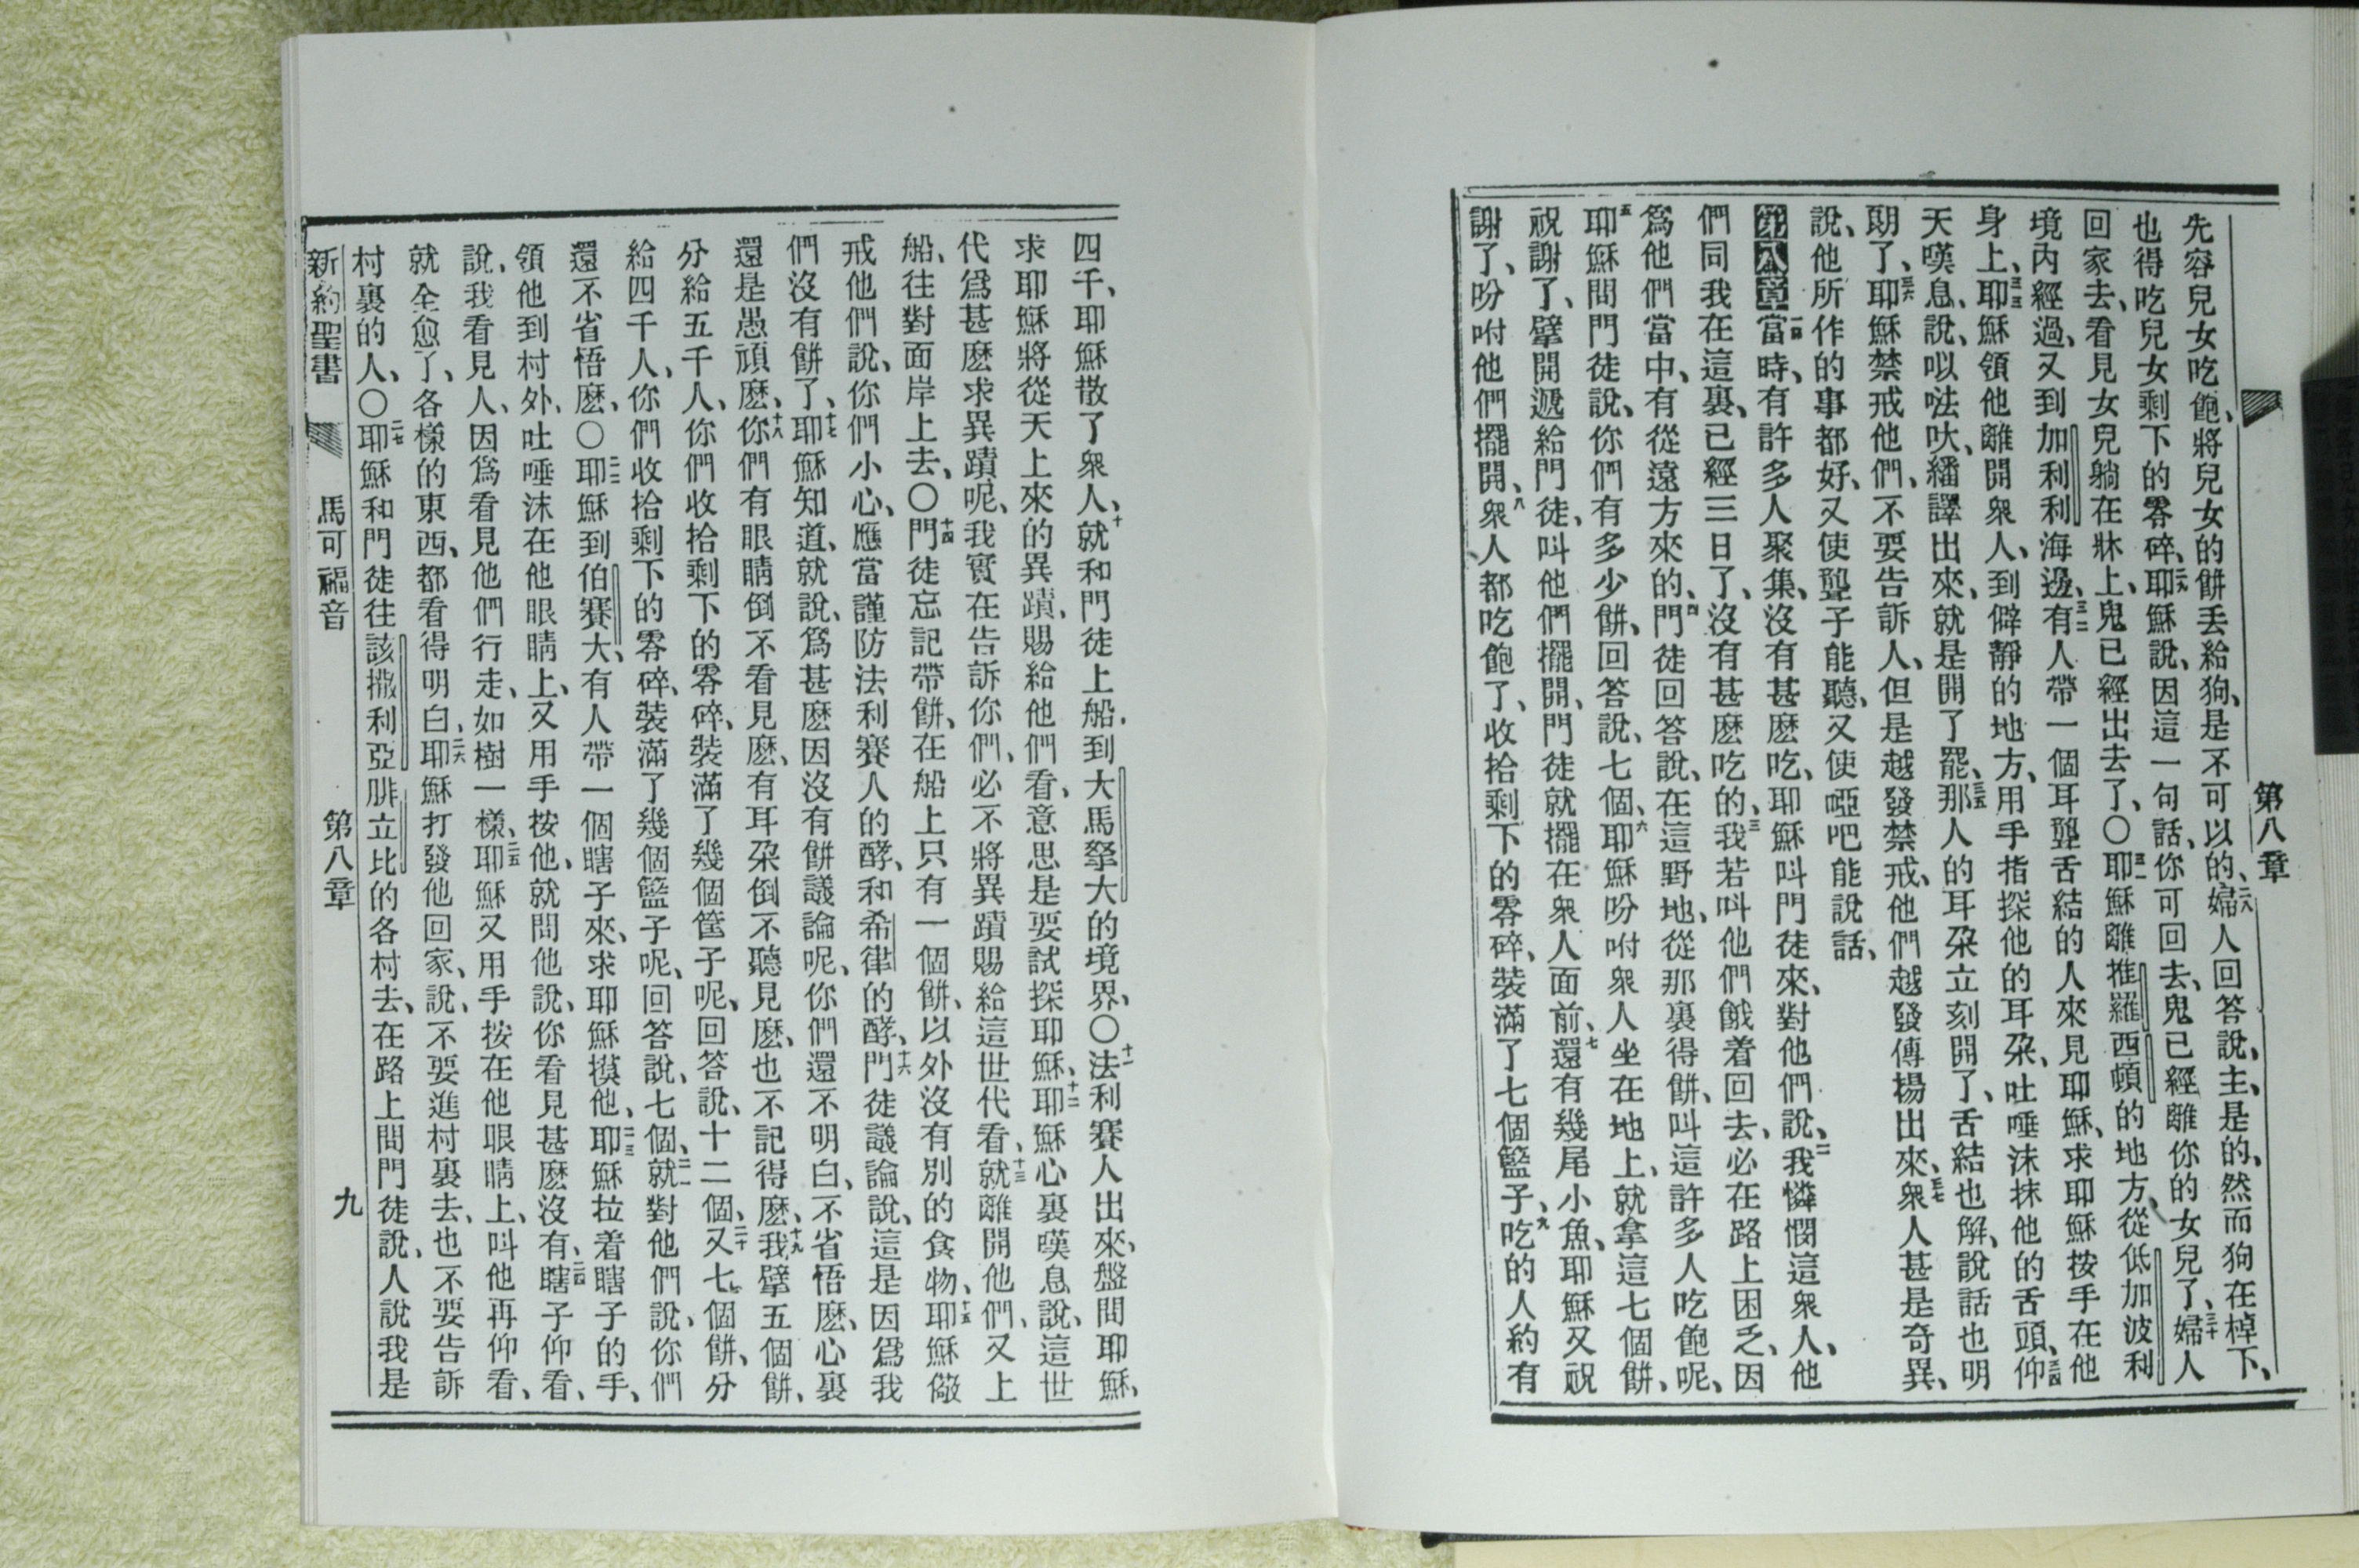 第八章
先容兒女吃飽、將兒女的餅丟給狗、是不可以的、二八婦人回答說、主、是的、然而狗在棹下、
也得吃兒女剩下的零碎、二九耶穌說、因這一句話、你可回去、鬼已經離你的女兒了、三十婦人
回家去、看見女兒躺在牀上、鬼已經出去了、〇三一耶穌離推羅西頓的地方、從低加波利
境內經過、又到加利利海邊、三二有人帶一個耳聾舌結的人來見耶穌、求耶穌按手在他
身上、三三耶穌領他離開衆人、到僻靜的地方、用手指探他的耳朶、吐唾沫抹他的舌頭、三四仰
天嘆息、說、㕽哒吙、繙譯出來、就是開了罷、三五那人的耳朶立刻開了、舌結也解、說話也明
朗了、三六耶穌禁戒他們、不要告訴人、但是越發禁戒、他們越發傳揚出來、三七衆人甚是奇異、
說、他所作的事都好、又使聾子能聽、又使啞吧能說話、
第八章一當時、有許多人聚集、沒有甚麽吃、耶穌叫門徒來、對他們說、二我憐憫這衆人、他
們同我在這裏、已經三日了、沒有甚麽吃的、三我若叫他們餓着回去、必在路上困乏、因
爲他們當中、有從遠方來的、四門徒回答說、在這野地、從那裏得餅、叫這許多人吃飽呢、
五耶穌問門徒說、你們有多少餅、回答說、七個、六耶穌吩咐衆人坐在地上、就拿這七個餅、
祝謝了、擘開、遞給門徒、叫他們擺開、門徒就擺在衆人面前、七還有幾尾小魚、耶穌又祝
謝了、吩咐他們擺開、八衆人都吃飽了、收拾剩下的零碎、裝滿了七個籃子、九吃的人約有
四千、耶穌散了衆人、十就和門徒上船、到大馬拏大的境界、〇十一法利賽人出來、盤問耶穌、
求耶穌將從天上來的異蹟、賜給他們看、意思是要試探耶穌、十二耶穌心裏嘆息、說、這世
代爲甚麽求異蹟呢、我實在告訴你們、必不將異蹟賜給這世代看、十三就離開他們、又上
船、往對面岸上去、〇十四門徒忘記帶餅、在船上只有一個餅、以外沒有別的食物、十五耶穌儆
戒他們說、你們小心、應當謹防法利賽人的酵、和希律的酵、十六門徒議論說、這是因爲我
們沒有餅了、十七耶穌知道、就說、爲甚麽因沒有餅議論呢、你們還不明白、不省悟麽、心裏
還是愚頑麽、十八你們有眼睛倒不看見麽、有耳朶倒不聽見麽、也不記得麽、十九我擘五個餅、
分給五千人、你們收拾剩下的零碎、裝滿了幾個筐子呢、回答說、十二個、二十又七個餅、分
給四千人、你們收拾剩下的零碎、裝滿了幾個籃子呢、回答說、七個、二一就對他們說、你們
還不省悟麽、〇二二耶穌到伯賽大、有人帶一個瞎子來、求耶穌摸他、二三耶穌拉着瞎子的手、
領他到村外、吐唾沫在他眼睛上、又用手按他、就問他說、你看見甚麽沒有、二四瞎子仰看、
說、我看見人、因爲看見他們行走、如樹一樣、二五耶穌又用手按在他眼睛上、叫他再仰看、
就全愈了、各樣的東西、都看得明白、二六耶穌打發他回家、說、不要進村裏去、也不要告訴
村裏的人、〇二七耶穌和門徒往該撒利亞腓立比的各村去、在路上問門徒說、人說我是
新約聖書 馬可福音 第八章 九